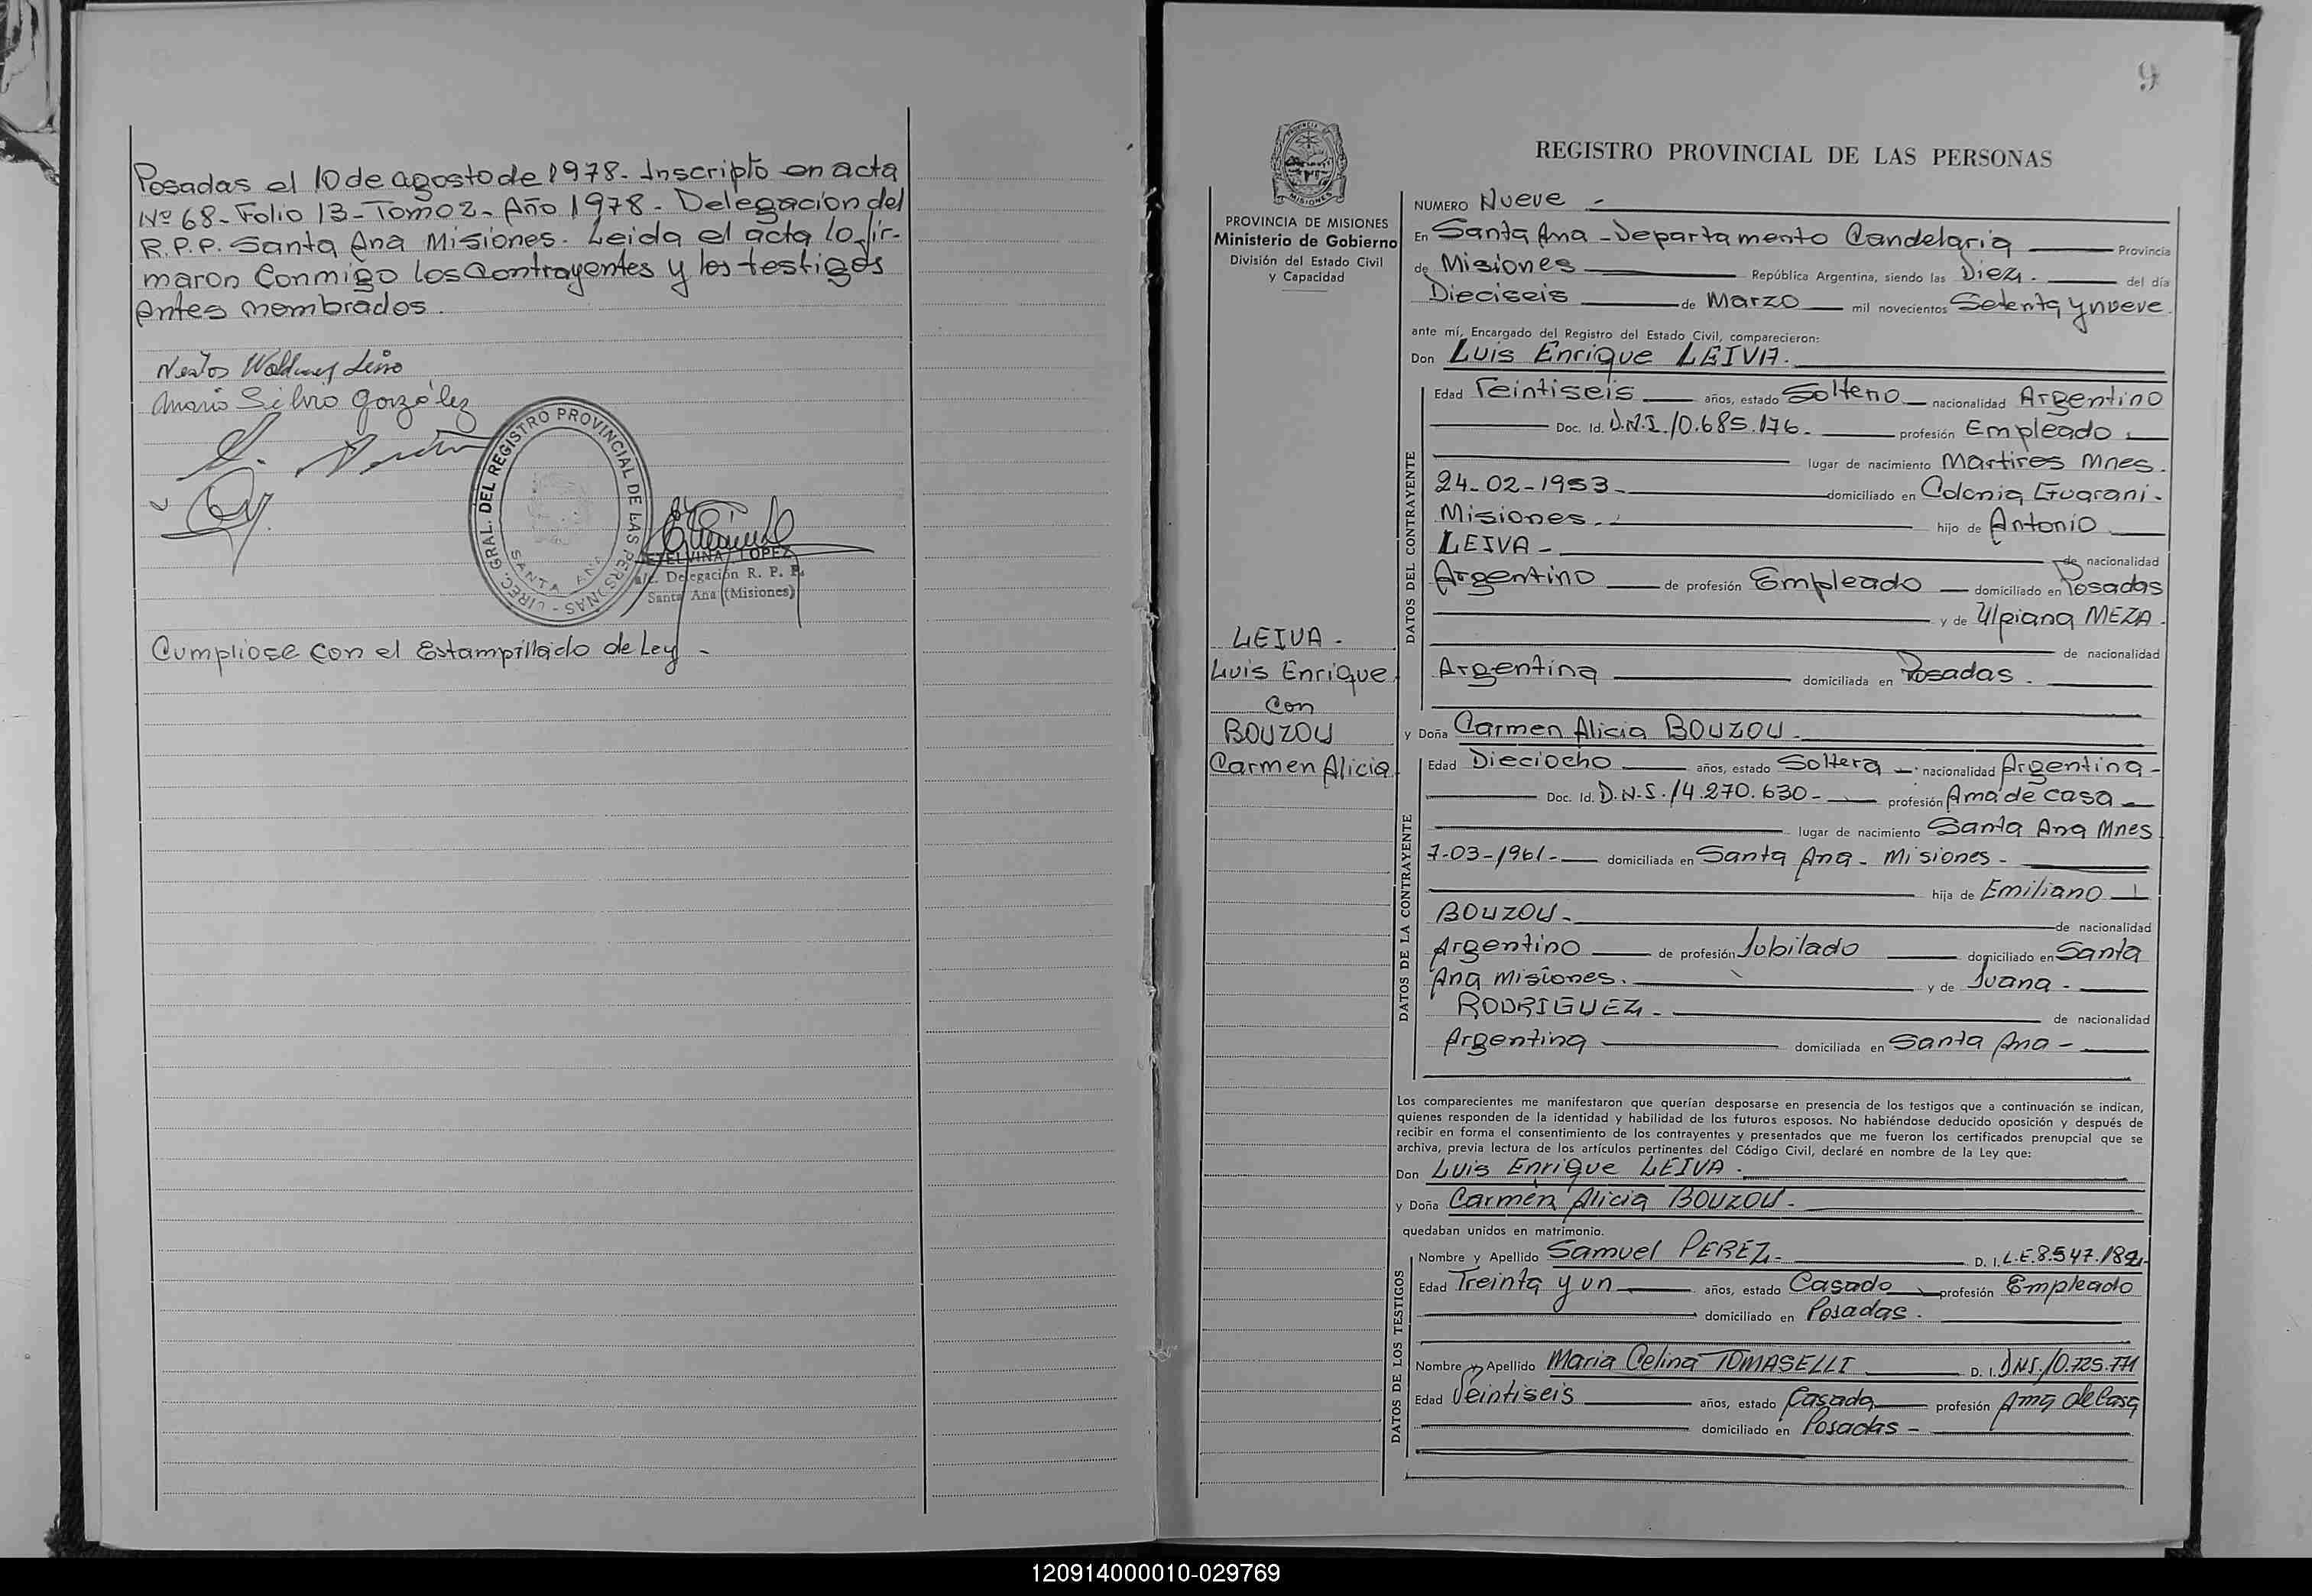 Posadas el 10 de agosto de 1978. Inscripto en acta
Nº 68 - Folio 13 - Tomo 2 - Año 1978 - Delegación del
R.P.P. Santa Ana Misiones. Leida el acta la fir-
maron conmigo los contrayentes y los testigos
antes nombrados.
Mario Silvio González
DIREC. GRAL. DEL REGISTRO PROVINCIAL DE LAS PERSONAS
SANTA ANA
ETELVINA LOPEZ
a/c. Delegación R. P. P.
Santa Ana (Misiones)
Cumpliose con el Estampillado de Ley -
9
PROVINCIA DE MISIONES
Ministerio de Gobierno
División del Estado Civil
y Capacidad
LEIVA -
Luis Enrique
Con
BOUZOU
Carmen Alicia
REGISTRO PROVINCIAL DE LAS PERSONAS
NUMERO Nueve -
En Santa Ana - Departamento Candelaria Provincia
de Misiones República Argentina, siendo las Diez - del día
Dieciseis de Marzo mil novecientos Setenta y nueve
ante mí, Encargado del Registro del Estado Civil, comparecieron:
Don Luis Enrique LEIVA.
DATOS DEL CONTRAYENTE
Edad Veintiseis años, estado Soltero nacionalidad Argentino
Doc. Id. D.N.I. 10.685.176 - profesión Empleado
lugar de nacimiento Martires Mnes.
24-02-1953 - domiciliado en Colonia Guarani -
Misiones. hijo de Antonio
LEIVA - de nacionalidad
Argentino de profesión Empleado domiciliado en Posadas
y de Ulpiana MEZA.
de nacionalidad
Argentina domiciliada en Posadas.
y Doña Carmen Alicia BOUZOU -
DATOS DE LA CONTRAYENTE
Edad Dieciocho años, estado Soltera nacionalidad Argentina -
Doc. Id. D.N.I. 14.270.630 - profesión Ama de casa
lugar de nacimiento Santa Ana Mnes
7-03-1961 - domiciliada en Santa Ana - Misiones -
hija de Emiliano
BOUZOU - de nacionalidad
Argentino de profesión Jubilado domiciliado en Santa
Ana Misiones. y de Juana -
RODRIGUEZ - de nacionalidad
Argentina domiciliada en Santa Ana -
Los comparecientes me manifestaron que querían desposarse en presencia de los testigos que a continuación se indican,
quienes responden de la identidad y habilidad de los futuros esposos. No habiéndose deducido oposición y después de
recibir en forma el consentimiento de los contrayentes y presentados que me fueron los certificados prenupcial que se
archiva, previa lectura de los artículos pertinentes del Código Civil, declaré en nombre de la Ley que:
Don Luis Enrique LEIVA.
y Doña Carmen Alicia BOUZOU -
quedaban unidos en matrimonio.
DATOS DE LOS TESTIGOS
Nombre y Apellido Samuel PEREZ - D. I. L.E.
Edad Treinta y un años, estado Casado profesión Empleado
domiciliado en Posadas.
Nombre y Apellido Maria Celina TOMASELLI D. I. DNI. 10.725.771
Edad Veintiseis años, estado Casada profesión Ama de Casa
domiciliado en Posadas -
120914000010-029769